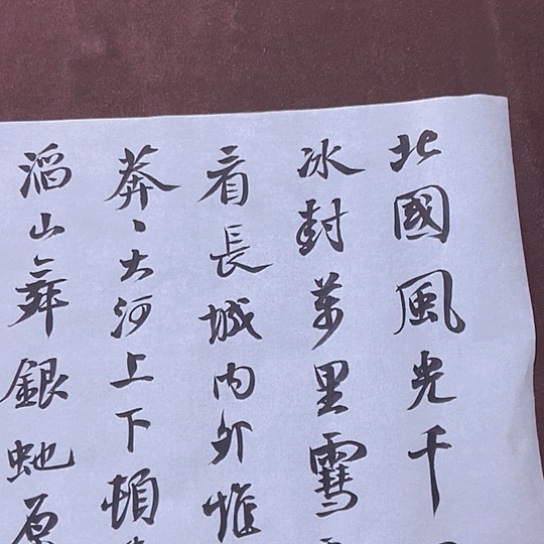 北國風光千
冰封萬里雪
看長城内外惟
莽、大河上下頓
滔山舞銀虵原